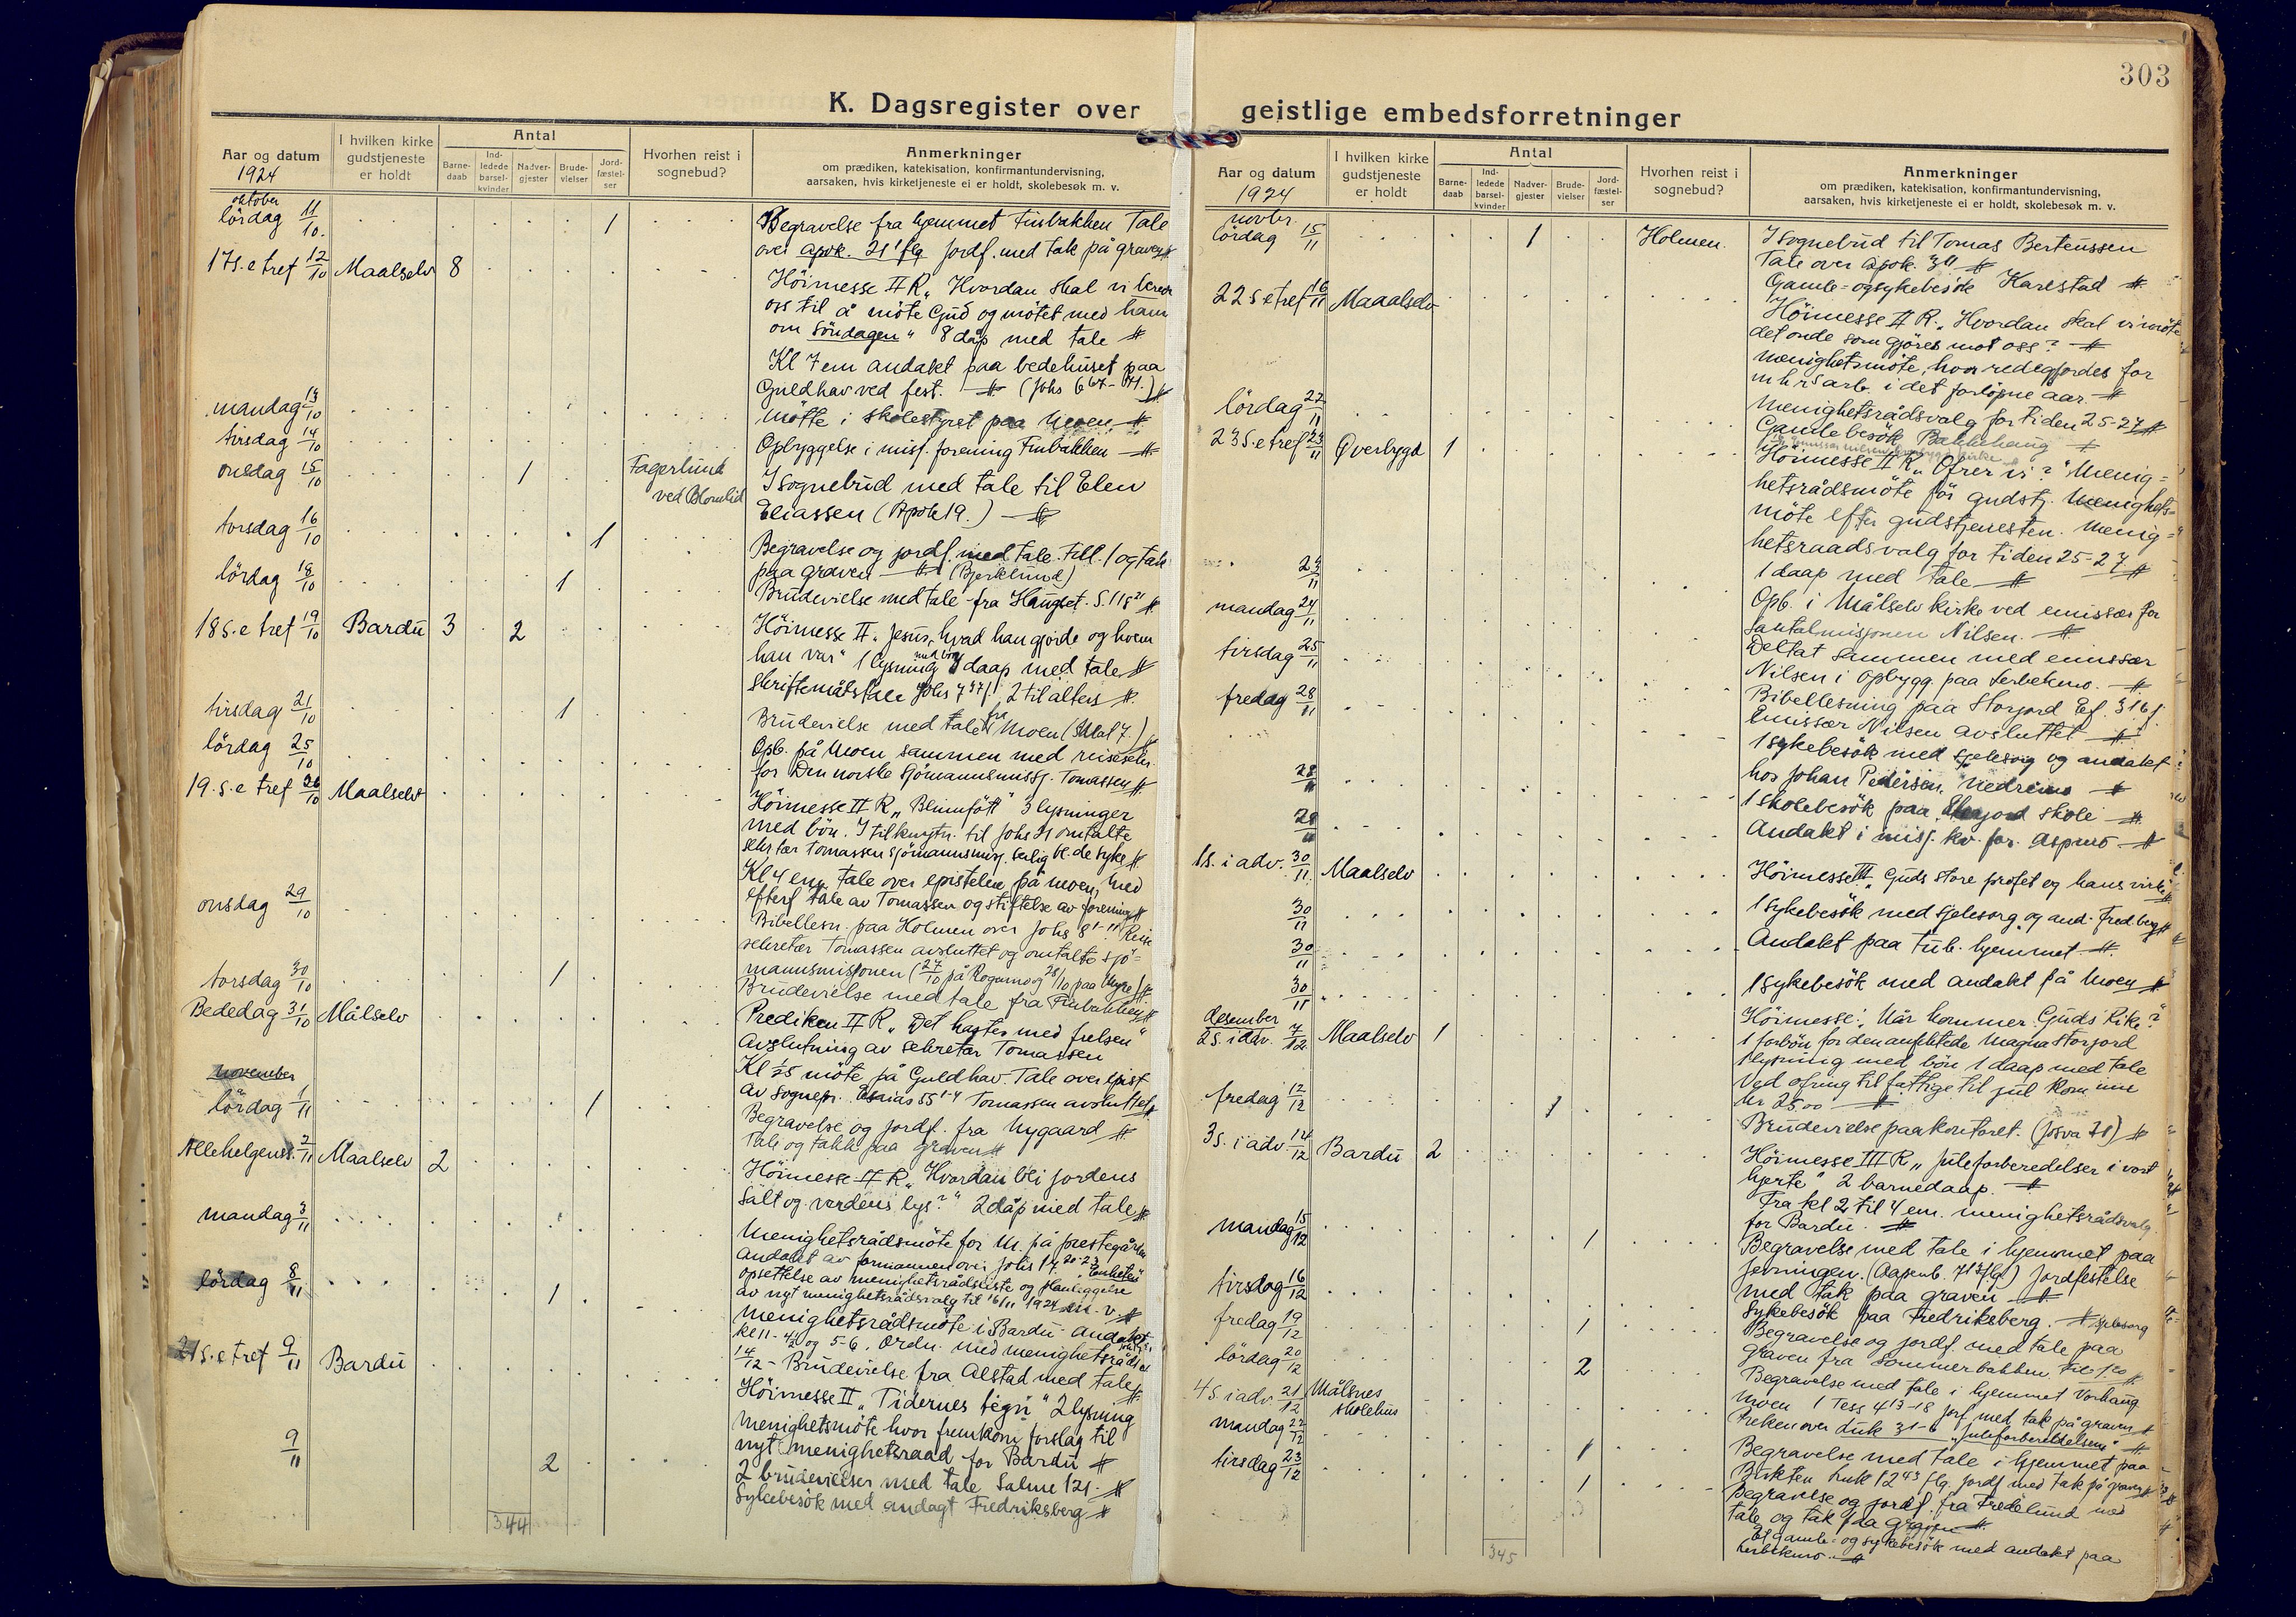 303
K. Dagsregister over geistlige embedsforretninger
Aar og datum
1924
I hvilken kirke gudstjeneste er holdt
Antal
Barne-daab
Ind-ledede barsel-kvinder
Nadver-gjester
Brude-vielser
Jord-fæstel-ser
Hvorhen reist i sognebud?
Anmerkninger
om prædiken, katekisation, konfirmantundervisning,
aarsaken, hvis kirketjeneste ei er holdt, skolebesøk m. v.
oktober
lördag 11/10. 1 Begravelse fra hjemmet Finbakken Tale
over apok. 21 1 flg jordf. med tak på graven
17 s. e tref 12/10 Maalselv 8
Höimesse II R „Hvordan skal vi berede
oss til å möte Gud og mötet med ham
om söndagen" 8 dåp med tale
Kl 7 em andakt paa bedehuset paa
Guldhav ved fest. (Johs 6 67-71.)
mandag 13/10 mötte i skolestyret paa Moen
tirsdag 14/10 Opbyggelse i misj. forening Finbakken
onsdag 15/10 1 Fagerlund ved Blomlid I sognebud med tale til Elen
Eliassen (Apok 19.)
torsdag 16/10 1 Begravelse og jordf. med tale. Fill. 1 og tak
paa graven (Bjerklund)
lördag 18/10 1 Brudevielse med tale fra Hauglet. S. 118 21
18 s. e tref 19/10 Bardu 3 2 Höimesse II „Jesus, hvad han gjorde og hvem
han var" 1 lysning med bön 3 daap med tale
Skriftemålstale Johs 7 37 f. 2 til alters
tirsdag 21/10 1 Brudevielse med tale fra Moen (Mat 7.)
lördag 25/10 Opb. på Moen sammen med reisesekr.
for Den norske sjömannsmissj. Tomassen
19. s. e tref 26/10 Maalselv Höimesse II R „Blinnfött" 3 lysninger
med bön. I tilknytn. til Johs 21 omtalte
sekretær Tomassen sjömannsmisj. særlig bl. de syke
Kl 4 em tale over epistelen på Moen, med
efterf tale av Tomassen og stiftelse av forening
onsdag 29/10 Bibellesn. paa Holmen over Johs 8 1-11. Reise
sekretær Tomassen avsluttet og omtalte sjö=
mannsmisjonen (27/10 på Rognmo og 28/10 paa Myre)
torsdag 30/10 1 Brudevielse med tale fra Finbakken
Bededag 31/10 Målselv Prediken II R „Det haster med frelsen"
Avslutning av sekretær Tomassen
Kl 1/2 5 möte på Guldhav. Tale over epist
av sognepr. Esaias 55 1-4 Tomassen avsluttet
november
lördag 1/11 1 Begravelse og jordf. fra Nygaard
Tale og takk paa graven
Allehelgens. 2/11 Maalselv 2 Höimesse II R „Hvordan bli jordens
salt og verdens lys?" 2 dåp med tale
mandag 3/11 Menighetsrådsmöte for M. på prestegården
Andakt av formannen over Johs 17 20-23 „Enheten"
opsettelse av menighetsrådsliste og planleggelse
av nyt menighetsrådsvalg til 16/11 1924 m. v.
lördag 8/11 1 menighetsrådsmöte i Bardu Andakt
kl 11- 4 1/2 og 5-6. Ordn. med menighetsråds
14/12 - Brudevielse fra Alstad med tale
21 s. e tref 9/11 Bardu Höimesse II „Tidernes tegn" 2 lysning
menighetsmöte hvor fremkom forslag til
nyt menighetsraad for Bardu
9/11 2 2 brudevielser med tale Salme 121.
Sykebesök med andagt Fredriksberg
344
Aar og datum
1924
I hvilken kirke gudstjeneste er holdt
Antal
Barne-daab
Ind-ledede barsel-kvinder
Nadver-gjester
Brude-vielser
Jord-fæstel-ser
Hvorhen reist i sognebud?
Anmerkninger
om prædiken, katekisation, konfirmantundervisning,
aarsaken, hvis kirketjeneste ei er holdt, skolebesøk m. v.
novbr.
lördag 15/11 1 Holmen. I sognebud til Tomas Berteussen
Tale over Apok. 3 11
Gamle- og sykebesök Karestad
22 s e tref 16/11 Maaalselv Höimesse II R. „Hvordan skal vi möte
det onde som gjöres mot oss?
menighetsmöte, hvor redegjordes for
mhrs arb. i det forlöpne aar.
Menighetsrådsvalg for tiden 25-27
lördag 22/11 Gamlebesök Bakkehaug
23 S. e tref 23/11 Överbygd 1 Höimesse II R „Ofrer vi?" Menig=
hetsrådsmöte för gudstj. Menighets=
möte efter gudstjenesten. Menig=
hetsraadsvalg for tiden 25-27
1 daap med tale
23/11 Opb. i Målselv kirke ved emissær for
Santalmisjonen Nilsen.
mandag 24/11 Deltat sammen med emissær
Nilsen i opbygg. paa Lerbekmo.
tirsdag 25/11 Bibellesning paa Storjord Ef. 3 16 f.
Emissær Nilsen avsluttet
fredag 28/11 1 sykebesök med sjelesorg og andakt
hos Johan Pedersen, Nedremo
28/11 1 skolebesök paa Storjord skole
28/11 Andakt i misj. kv. for. Aspmo.
1 s. i adv. 30/11 Maalselv Höimesse III „Guds store profet og hans virke"
30/11 1 sykebesök med sjelesorg og and. Fredberg
30/11 Andakt paa tub. hjemmet.
30/11 1 sykebesök med andakt på Moen
desember
2 s. i adv. 7/12 Maalselv 1 Höimesse: „Når kommer Guds Rike?
1 forbön for den anfektede Magna Storjord
1 lysning med bön 1 daap med tale
Ved ofring til fattige til jul kom inn
kr 25.00
fredag 12/12 1 Brudevielse paa kontoret. (Josva 24)
3 s. i adv. 14/12 Bardu 2 Höimesse III R „Juleforberedelser i vort
hjerte" 2 barnedaap.
Fra kl 2 til 4 em. menighetsrådsvalg
for Bardu.
mandag 15/12 1 Begravelse med tale i hjemmet paa
Jevningen. (Aapenb. 7 13 flg) Jordfestelse
med tak paa graven
tirsdag 16/12 Sykebesök paa Fredriksberg. sjelesorg
fredag 19/12 1 Begravelse og jordf. med tale paa
graven fra Sommerbakken
lördag 20/12 2 Begravelse med tale i hjemmet Vorhaug
Moen 1 Tess 4 13-18 jorf. med tak på graven
4 s. i adv. 21/12 Målsnes skolehus Preken over Luk 3 1-6 „Juleforberedelsene"
mandag 22/12 1 Begravelse med tale i hjemmet paa
Birkten Luk 12 43 flg. jordf med tak på graven
tirsdag 23/12 1 Begravelse og jordf. fra Fredelund med
tale og tak paa graven
Et gamle- og sykebesök med andakt paa
Lerbekmo
345